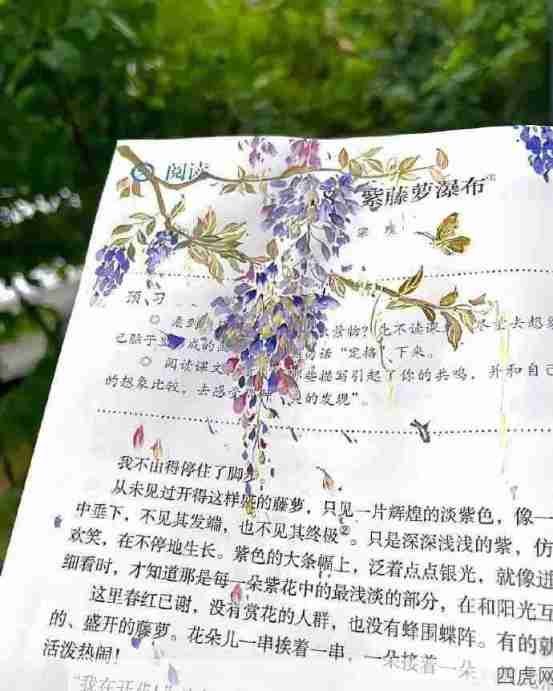 阅读
紫藤萝瀑布①
宗璞
预 习
○ 看到 景物?先不读课 去想
己脑子里 成的 句话“定格”下来。
○ 阅读课文 那些描写引起了你的共鸣,并和自己
的想象比较,去感受 的发现”。
我不由得停住了脚步。
从未见过开得这样盛的藤萝,只见一片辉煌的淡紫色,像一
中垂下,不见其发端,也不见其终极②。只是深深浅浅的紫,仿
欢笑,在不停地生长。紫色的大条幅上,泛着点点银光,就像迸
细看时,才知道那是每一朵紫花中的最浅淡的部分,在和阳光互
这里春红已谢,没有赏花的人群,也没有蜂围蝶阵。有的就
的、盛开的藤萝。花朵儿一串挨着一串,一朵接着一朵
活泼热闹!
“我在开花!”
四虎网